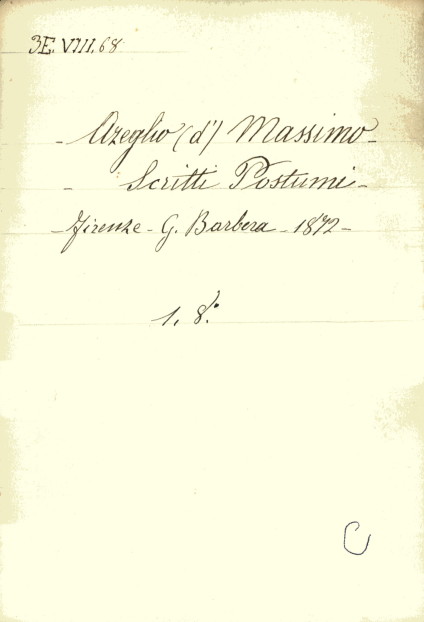 3E. VIII. 68
- Azeglio (d') Massimo -
- Scritti Postumi -
- Firenze - G. Barbera - 1872 -
1, 8.°
C